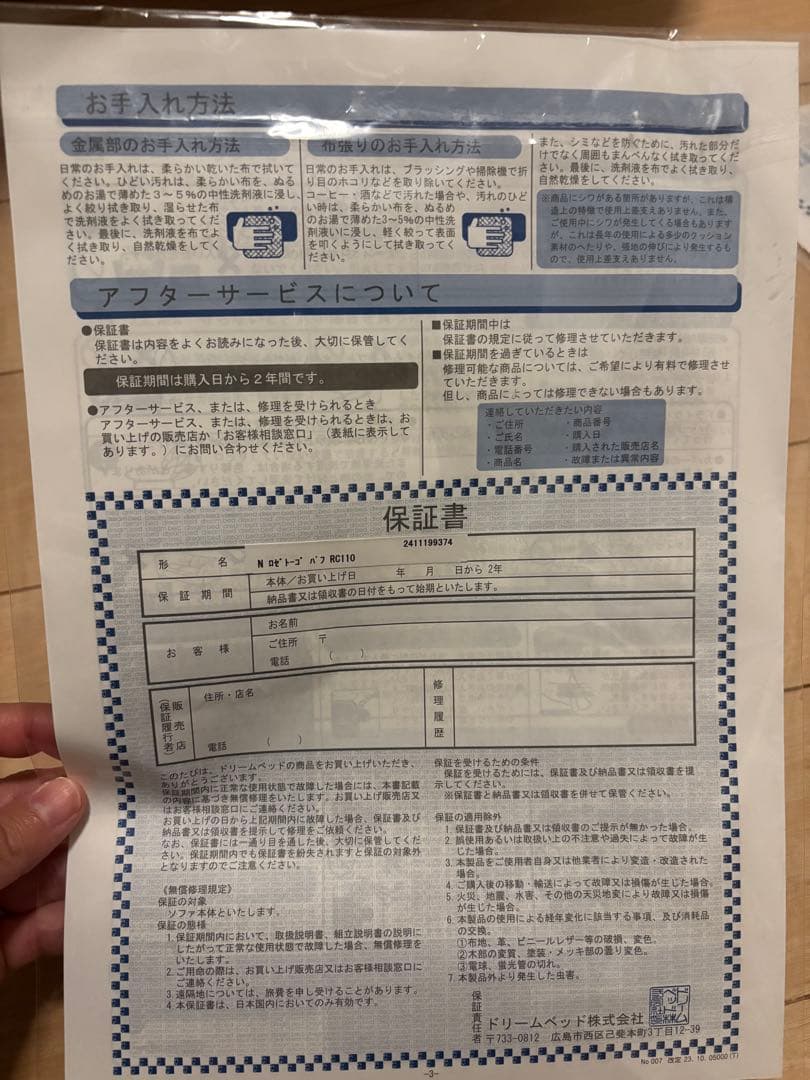 お手入れ方法
金属部のお手入れ方法
日常のお手入れは、柔らかい乾いた布で拭いて
ください。ひどい汚れは、柔らかい布を、ぬるめ
のお湯で薄めた3～5%の中性洗剤液に浸し、
よく絞り拭き取り、湿らせた布
で洗剤液をよく拭き取ってくだ
さい。最後に、洗剤液を布でよ
く拭き取り、自然乾燥をしてく
ださい。
布張りのお手入れ方法
日常のお手入れは、ブラッシングや掃除機で折
り目のホコリなどを取り除いてください。
コーヒー・酒などで汚れた場合や、汚れのひど
い時は、柔らかい布を、ぬるめ
のお湯で薄めた3～5%の中性洗
剤液に浸し、軽く絞って表面
を叩くようにして拭き取ってく
ださい。
また、シミなどを防ぐために、汚れた部分だ
けでなく周囲もまんべんなく拭き取ってくだ
さい。最後に、洗剤液を布でよく拭き取り、
自然乾燥をしてください。
※商品にシワがある箇所がありますが、これは構
造上の特徴で使用上差支えありません。また、
ご使用中にシワが発生してくる場合もあります
が、これは長年の使用による多少のクッション
素材のへたりや、張地の伸びにより発生するも
ので、使用上差支えありません。
アフターサービスについて
●保証書
保証書は内容をよくお読みになった後、大切に保管してく
ださい。
保証期間は購入日から2年間です。
●アフターサービス、または、修理を受けられるとき
アフターサービス、または、修理を受けられるときは、お
買い上げの販売店か「お客様相談窓口」（表紙に表示して
あります。）にお問い合わせください。
■保証期間中は
保証書の規定に従って修理させていただきます。
■保証期間を過ぎているときは
修理可能な商品については、ご希望により有料で修理させ
ていただきます。
但し、商品によっては修理できない場合もあります。
連絡していただきたい内容
・ご住所 ・商品番号
・ご氏名 ・購入日
・電話番号 ・購入された販売店名
・商品名 ・故障または異常内容
保証書
2411199374
形名 N ﾛｾﾞﾄｰｺﾞ ﾊﾟﾌ RC110
保証期間 本体／お買い上げ日 年 月 日から 2年
納品書又は領収書の日付をもって始期といたします。
お客様 お名前
ご住所 〒
電話 （ ）
販売店
（保証履行者）
住所・店名
電話 （ ）
修理履歴
このたびは、ドリームベッドの商品をお買い上げいただき、
ありがとうございます。
保証期間内に正常な使用状態で故障した場合には、本書記載
の内容に基づき無償修理をいたします。お買い上げ販売店又
はお客様相談窓口にご連絡ください。
お買い上げの日から上記期間内に故障した場合、保証書及び
納品書又は領収書を提示して修理をご依頼ください。
なお、保証書には一通り目を通した後、大切に保管してくだ
さい。保証期間内でも保証書を紛失されますと保証の対象外
となりますのでご注意ください。
《無償修理規定》
保証の対象
ソファ本体といたします。
保証の態様
1. 保証期間内において、取扱説明書、組立説明書の説明に
したがって正常な使用状態で故障した場合、無償修理を
いたします。
2. ご用命の際は、お買い上げ販売店又はお客様相談窓口に
ご連絡ください。
3. 遠隔地については、旅費を申し受けることがあります。
4. 本保証書は、日本国内においてのみ有効です。
保証を受けるための条件
保証を受けるためには、保証書及び納品書又は領収書を提
示してください。
※保証書と納品書又は領収書を併せて保管ください。
保証の適用除外
1. 保証書及び納品書又は領収書のご提示が無かった場合。
2. 誤使用あるいは取扱い上の不注意や過失によって故障が生
じた場合。
3. 本製品をご使用者自身又は他業者により変造・改造された
場合。
4. ご購入後の移動・輸送によって故障又は損傷が生じた場合。
5. 火災、地震、水害、その他の天災地変により故障又は損傷
が生じた場合。
6. 本製品の使用による経年変化に該当する事項、及び消耗品
の交換。
①布地、革、ビニールレザー等の破損、変色。
②木部の変質、塗装・メッキ部の曇り変色。
③電球、蛍光管の切れ。
7. 本製品外より発生した虫害。
保証責任者
ドリームベッド株式会社
〒733-0812 広島市西区己斐本町3丁目12-39
No 007 改定 23. 10. 05000 (T)
-3-